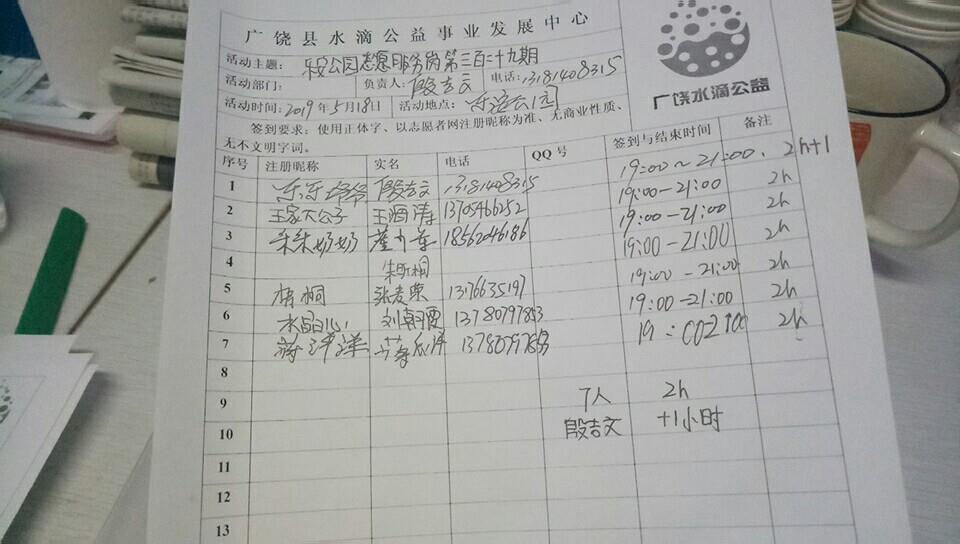 广饶县水滴公益事业发展中心
活动主题: 乐安公园志愿服务岗第三百二十九期
活动部门: 负责人: 殷吉文 电话: 13181408315
活动时间: 2019年5月18日 活动地点: 乐安公园
签到要求：使用正体字、以志愿者网注册昵称为准、无商业性质、
无不文明字词。
广饶水滴公益
序号 注册昵称 实名 电话 QQ号 签到与结束时间 备注
1 乐乐爷爷 殷吉文 13181408315 19:00~21:00. 2h+1
2 王家大公子 王酒涛 13705466252 19:00-21:00 2h
3 朵朵奶奶 18562046186 19:00-21:00 2h
4 朱昕桐 19:00-21:00 2h
5 梧桐 张麦荣 13176635197 19:00-21:00 2h
6 水晶心 刘朝霞 13780797893 19:00-21:00 2h
7 蒋洋洋 19:0021:00 2h
8
9 7人 2h
10 殷吉文 +1小时
11
12
13